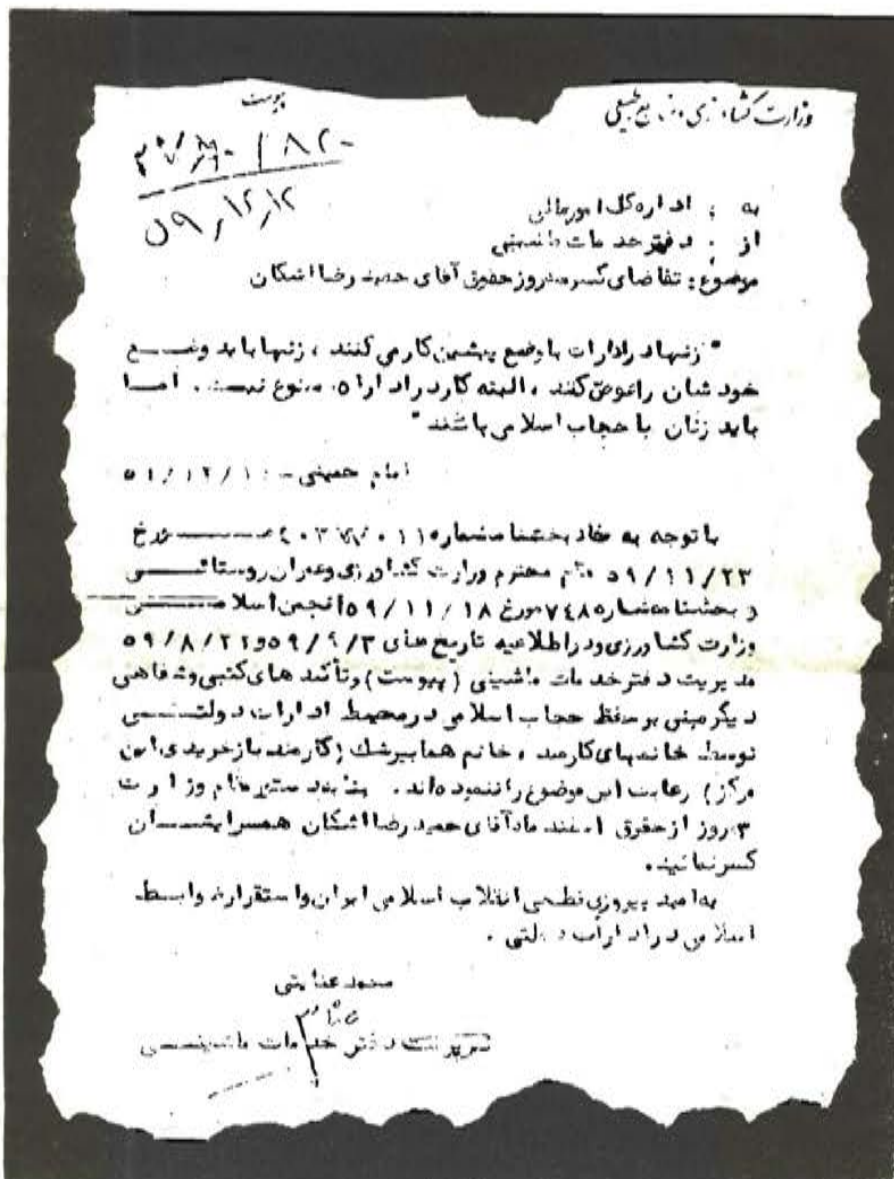 وزارت کشاورزی و منابع طبیعی
پیوست
۸۲۰
۵۹,۱۲,۱۲
به : اداره کل امور مالی
از : دفتر خدمات ماشینی
موضوع : تقاضای کسر سه روز حقوق آقای حمید رضا اشکان
" زنها در ادارات با وضع پیشین کار می کنند ، زنها باید وضع
خودشان را عوض کنند ، البته کار در ادارات ممنوع نیست . اما
باید زنان با حجاب اسلامی باشند "
امام خمینی
با توجه به مفاد بخشنامه شماره مورخ
۵۹/۱۱/۲۳ مقام محترم وزارت کشاورزی و عمران روستائی
و بخشنامه شماره ۷۴۸ مورخ ۵۹/۱۱/۱۸ انجمن اسلامی
وزارت کشاورزی و در اطلاعیه تاریخ های ۵۹/۹/۳ و ۵۹/۸/۲۲
مدیریت دفتر خدمات ماشینی ( پیوست ) و تأکید های کتبی و شفاهی
دیگر مبنی بر حفظ حجاب اسلامی در محیط ادارات دولتی
توسط خانمهای کارمند ، خانم هما بیرشک ( کارمند بازخریدی این
مرکز ) رعایت این موضوع را ننموده اند . بنا به دستور مقام وزارت
۳ روز از حقوق اسفند ماه آقای حمید رضا اشکان همسر ایشان
کسر نمائید .
به امید پیروزی قطعی انقلاب اسلامی ایران و استقرار ضوابط
اسلامی در ادارات دولتی .
محمد عنایتی
سرپرست دفتر خدمات ماشینی